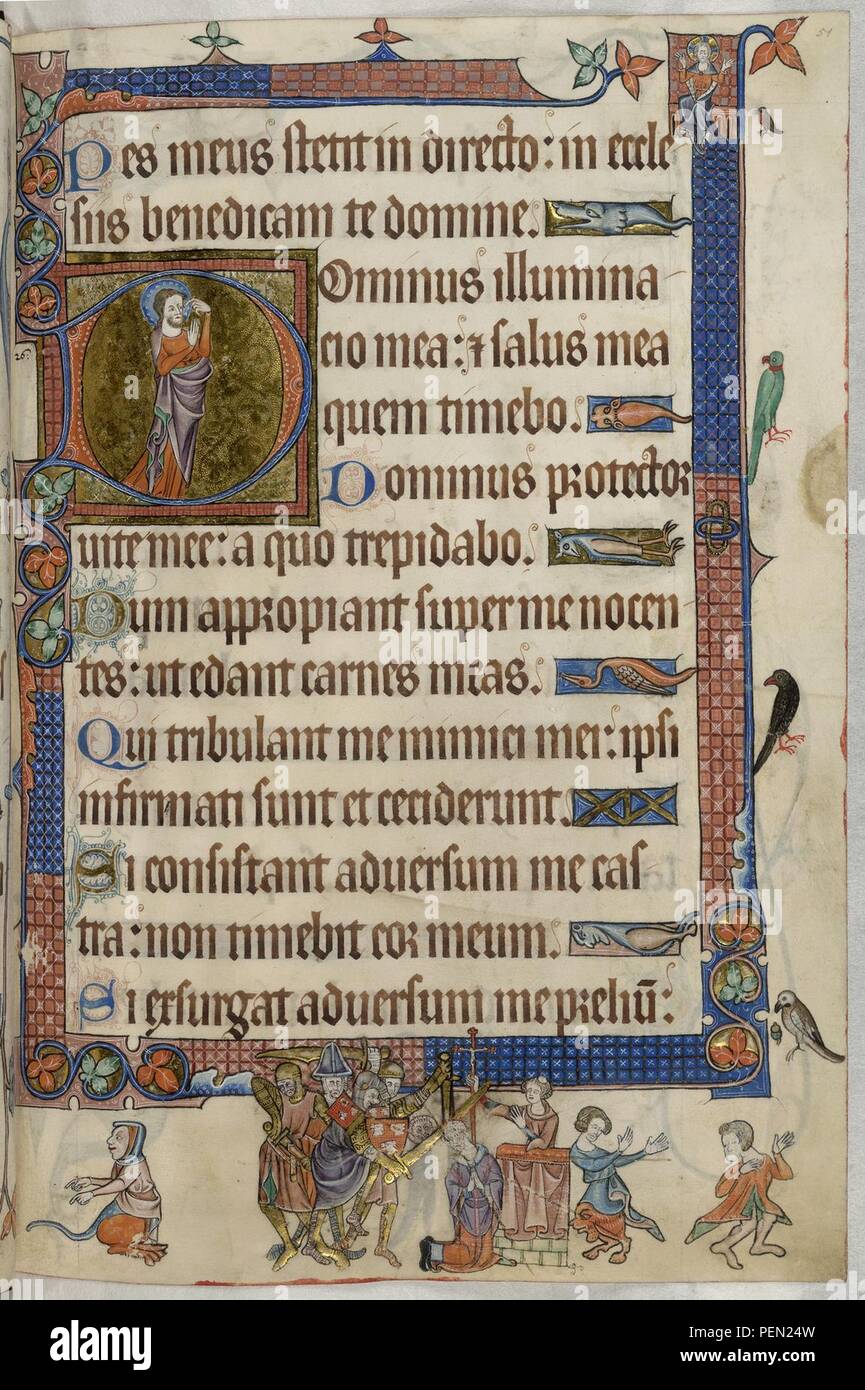 51
Pes meus stetit in directo: in eccle
siis benedicam te domine.
Dominus illumina
cio mea: ⁊ salus mea
26
quem timebo.
Dominus protector
uite mee: a quo trepidabo.
Dum appropiant super me nocen
tes: ut edant carnes meas.
Qui tribulant me inimici mei: ipsi
infirmati sunt et ceciderunt.
Si consistant aduersum me cas
tra: non timebit cor meum.
Si exsurgat aduersum me preliū:
alamy
a
Image ID: PEN24W
www.alamy.com